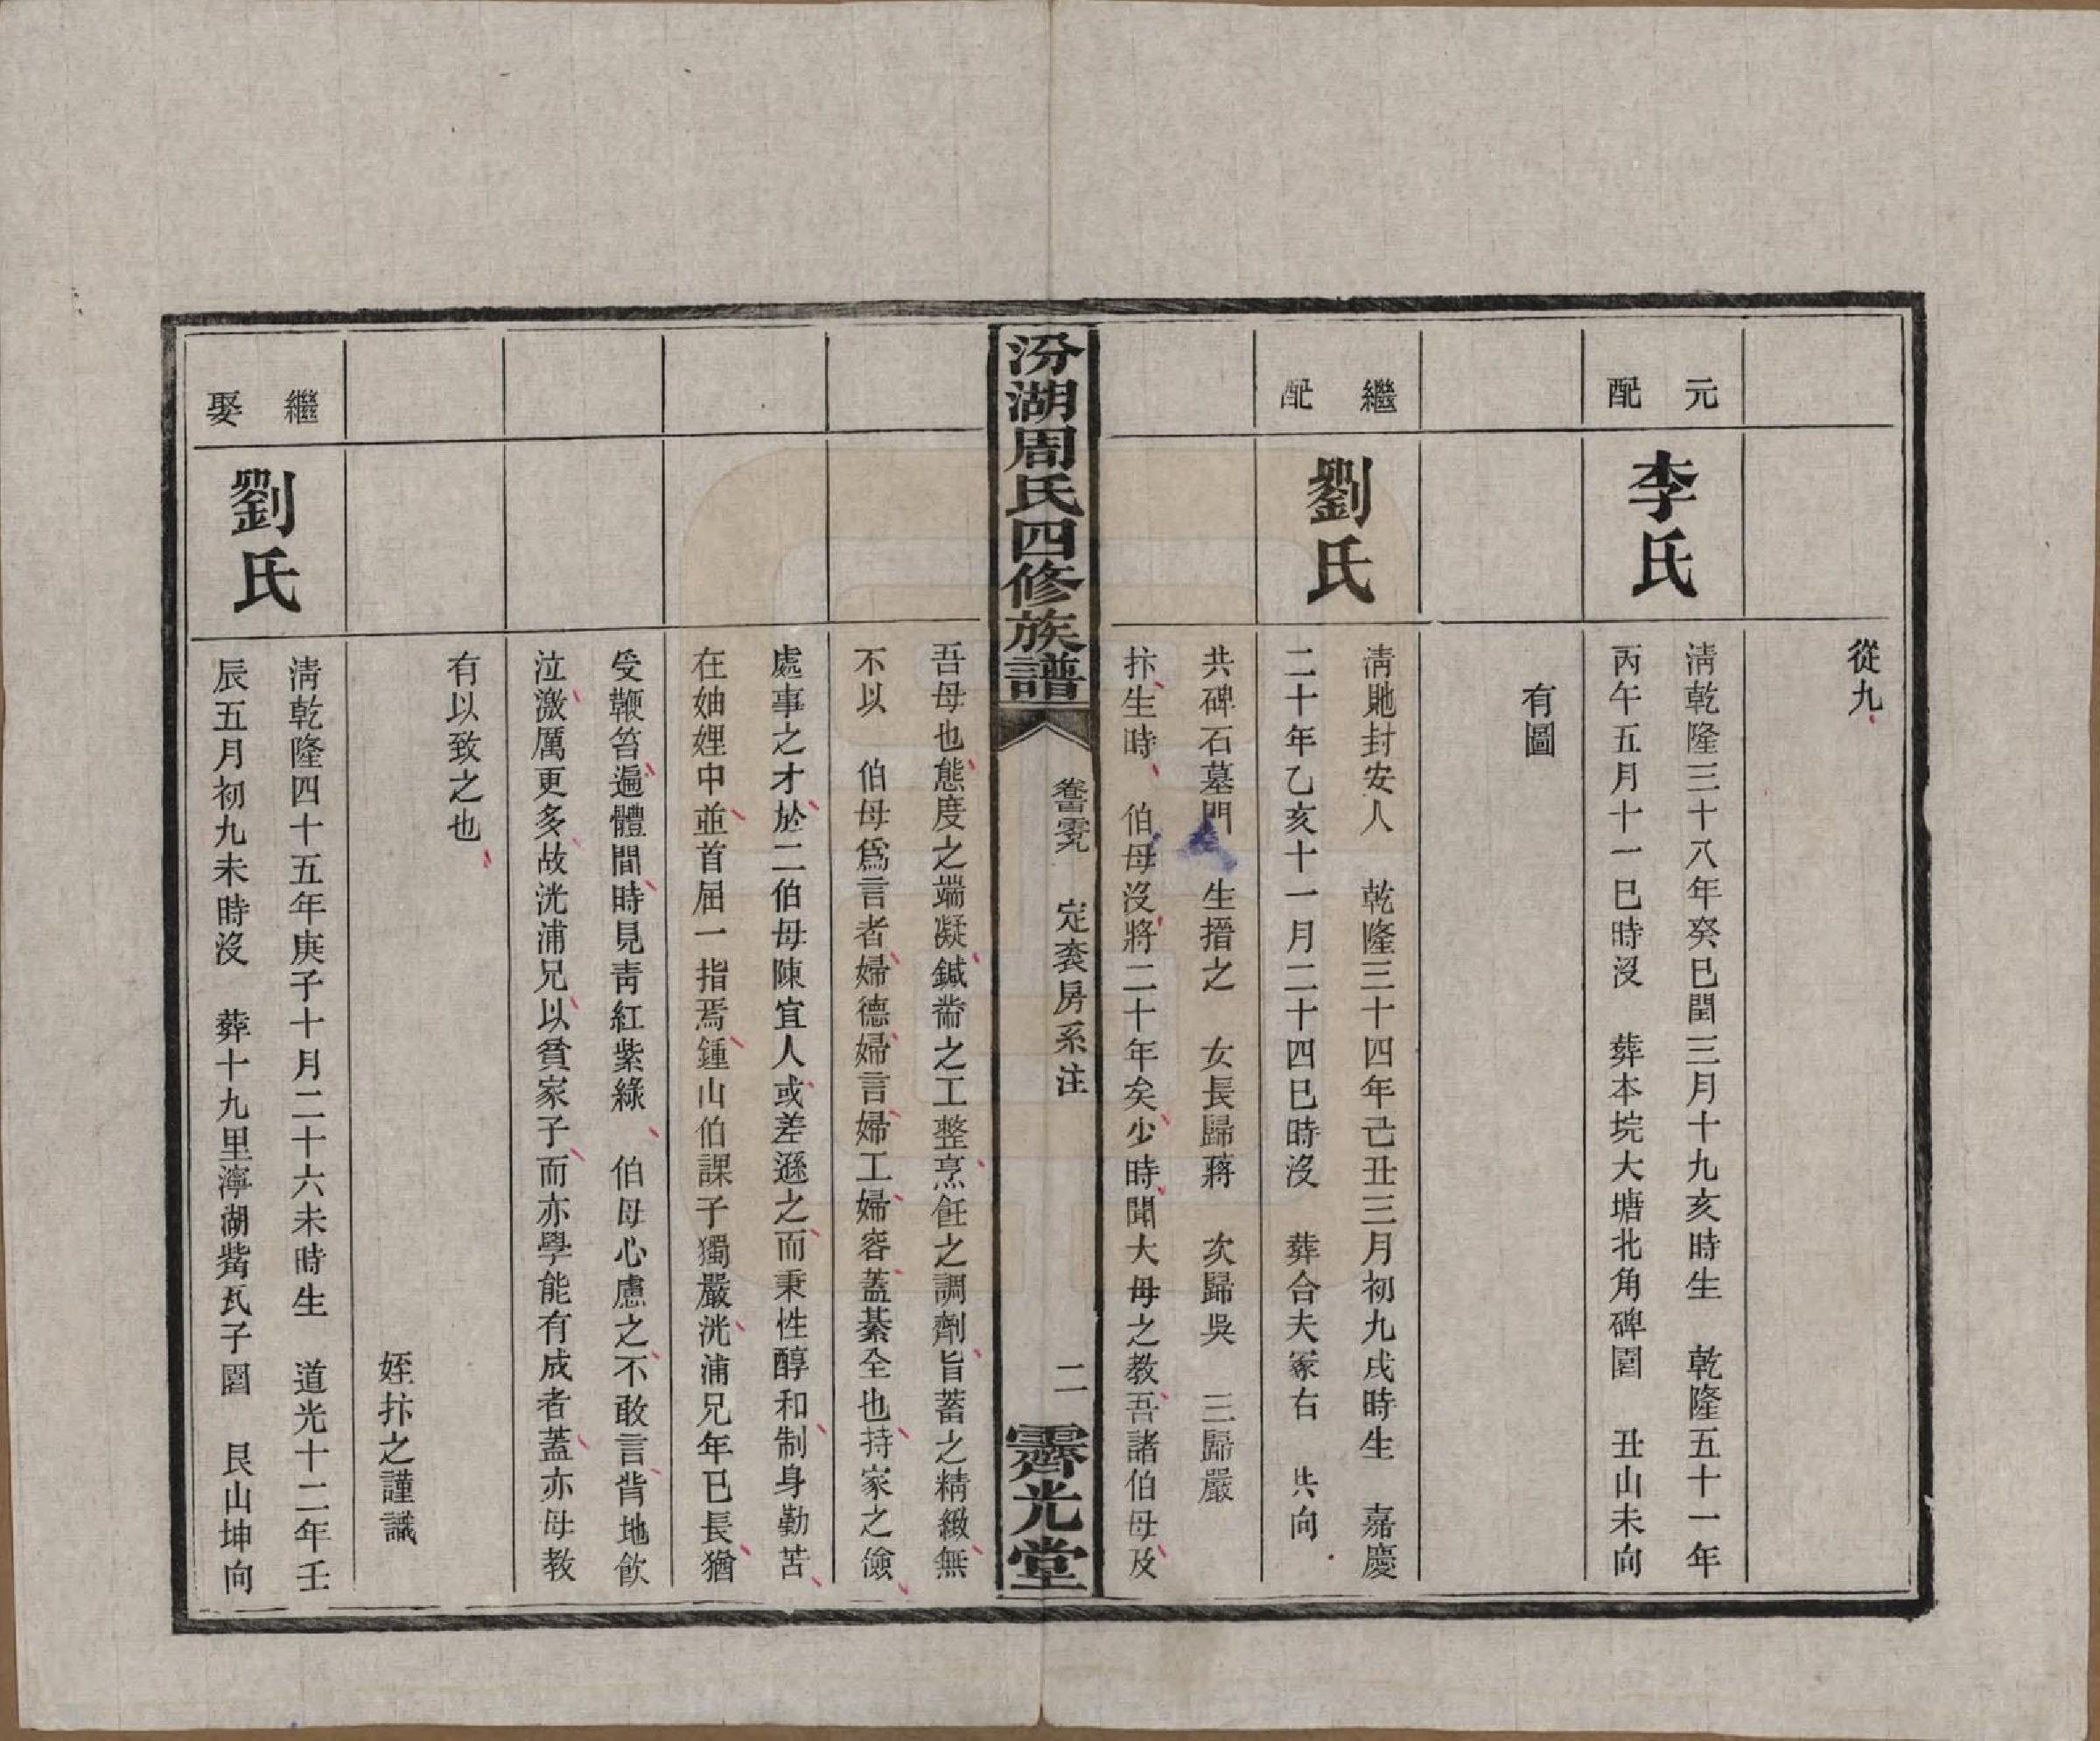 從九
元配
李氏
淸乾隆三十八年癸巳閏三月十九亥時生　乾隆五十一年
丙午五月十一巳時沒　葬本垸大塘北角碑圍　丑山未向
有圖
繼配
劉氏
淸貤封安人　乾隆三十四年己丑三月初九戌時生　嘉慶
二十年乙亥十一月二十四巳時沒　葬合夫冢右　共向
共碑石墓門　生搢之　女長歸蔣　次歸吳　三歸嚴
抃生時　伯母沒將二十年矣少時聞大母之教吾諸伯母及
汾湖周氏四修族譜
卷
定袞房系注
二
霽光堂
吾母也態度之端凝鍼黹之工整烹飪之調劑旨蓄之精緻無
不以　伯母爲言者婦德婦言婦工婦容蓋綦全也持家之儉
處事之才於二伯母陳宜人或差遜之而秉性醇和制身勤苦
在妯娌中並首屈一指焉鍾山伯課子獨嚴洸浦兄年已長猶
受鞭笞遍體間時見靑紅紫綠　伯母心慮之不敢言背地飮
泣激厲更多故洸浦兄以貧家子而亦學能有成者蓋亦母教
有以致之也
姪抃之謹識
繼娶
劉氏
淸乾隆四十五年庚子十月二十六未時生　道光十二年壬
辰五月初九未時沒　葬十九里濘湖觜瓦子園　艮山坤向